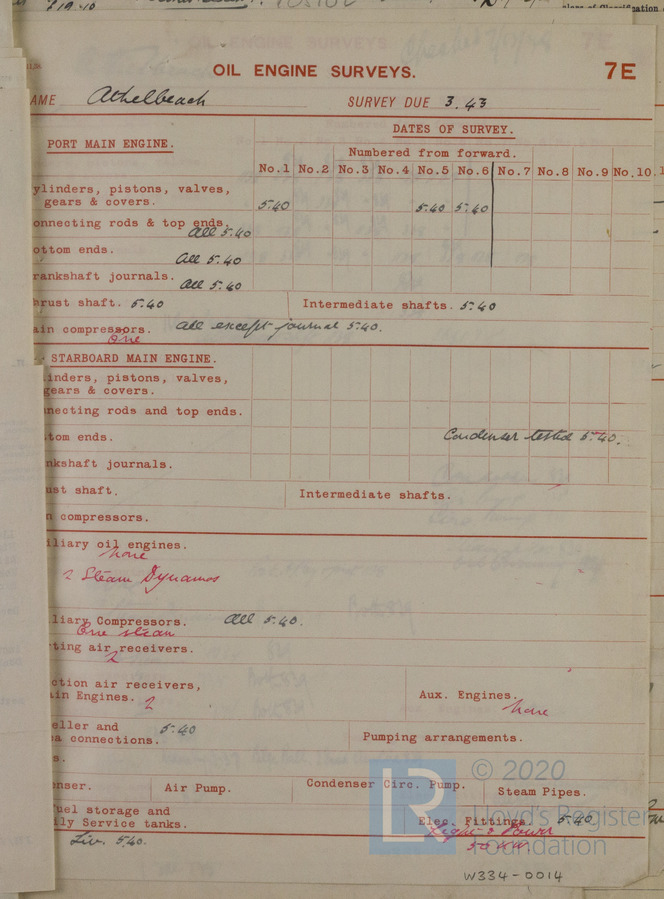 £19.10
OIL ENGINE SURVEYS.
7E
AME Athelbeach SURVEY DUE 3.43
PORT MAIN ENGINE.
DATES OF SURVEY.
Numbered from forward.
No.1 No.2 No.3 No.4 No.5 No.6 No.7 No.8 No.9 No.10.
ylinders, pistons, valves,
gears & covers. 5.40 5.40 5.40
onnecting rods & top ends.
All 5.40
ottom ends. All 5.40
rankshaft journals. All 5.40
hrust shaft. 5.40 Intermediate shafts. 5.40
ain compressors. All except journal 5.40.
One
STARBOARD MAIN ENGINE.
inders, pistons, valves,
gears & covers.
necting rods and top ends.
tom ends. Condenser tested 5.40.
nkshaft journals.
ust shaft. Intermediate shafts.
n compressors.
iliary oil engines.
None
2 Steam Dynamos
liary Compressors. All 5.40.
One steam
ting air receivers.
2
ction air receivers,
ain Engines. 2 Aux. Engines.
None
eller and
a connections. 5.40 Pumping arrangements.
s.
nser. Air Pump. Condenser Circ. Pump. Steam Pipes.
uel storage and
ily Service tanks. Elec. Fittings. 5.40
Light & Power
Liv. 5.40.
© 2020
LR
Lloyd's Register
Foundation
W334-0014